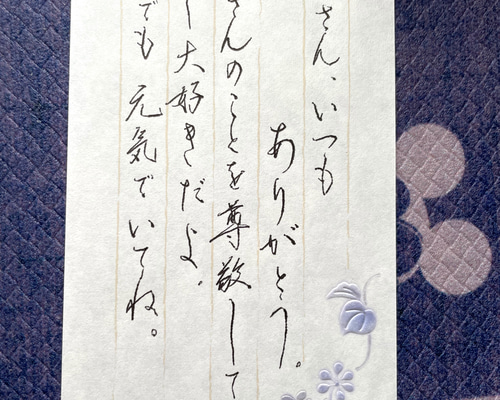 さん、いつも
ありがとう。
さんのことを尊敬して
大好きだよ。
でも元気でいてね。